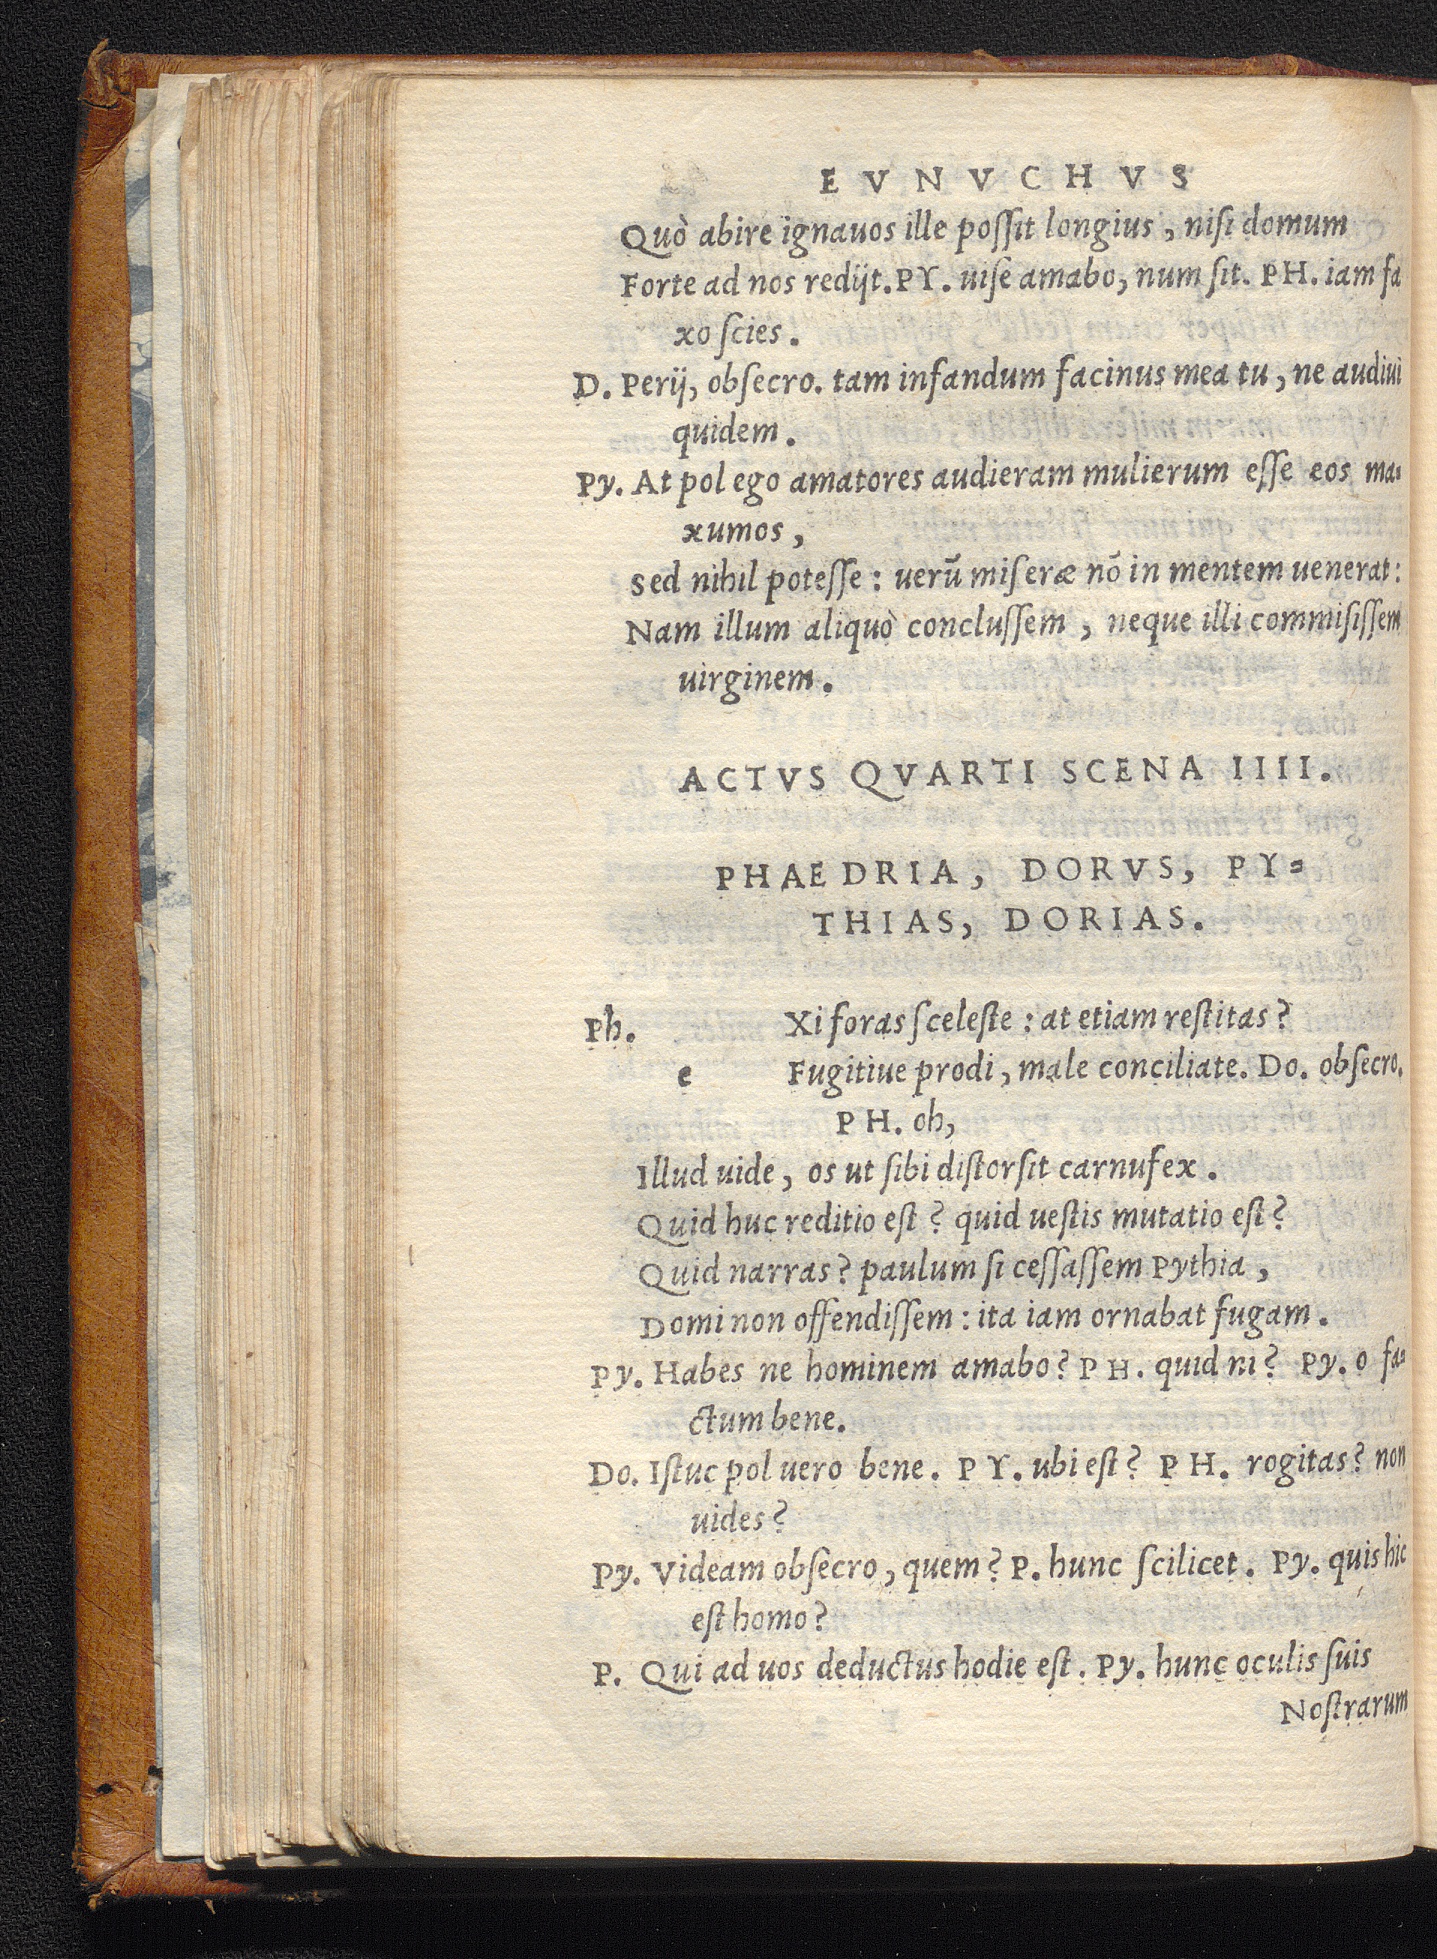 EVNVCHVS
Quò abire ignauos ille poſſit longius, niſi domum
Forte ad nos redijt. PY. uiſe amabo, num ſit. PH. iam fa
xo ſcies.
D. Perij, obſecro. tam infandum facinus mea tu, ne audiui
quidem.
Py. At pol ego amatores audieram mulierum eſſe eos ma=
xumos,
sed nihil poteſſe: uerū miſeræ nō in mentem uenerat:
Nam illum aliquò concluſſem, neque illi commiſiſſem
uirginem.
ACTVS QVARTI SCENA IIII.
PHAEDRIA, DORVS, PY=
THIAS, DORIAS.
Ph. Xi foras ſceleſte: at etiam reſtitas?
e Fugitiue prodi, male conciliate. Do. obſecro.
PH. oh,
Illud uide, os ut ſibi diſtorſit carnufex.
Quid huc reditio eſt? quid ueſtis mutatio eſt?
Quid narras? paulum ſi ceſſaſſem Pythia,
Domi non offendiſſem: ita iam ornabat fugam.
Py. Habes ne hominem amabo? PH. quid ni? Py. o fa=
ctum bene.
Do. Iſtuc pol uero bene. PY. ubi eſt? PH. rogitas? non
uides?
Py. Videam obſecro, quem? P. hunc ſcilicet. Py. quis hic
eſt homo?
P. Qui ad uos deductus hodie eſt. Py. hunc oculis ſuis
Noſtrarum